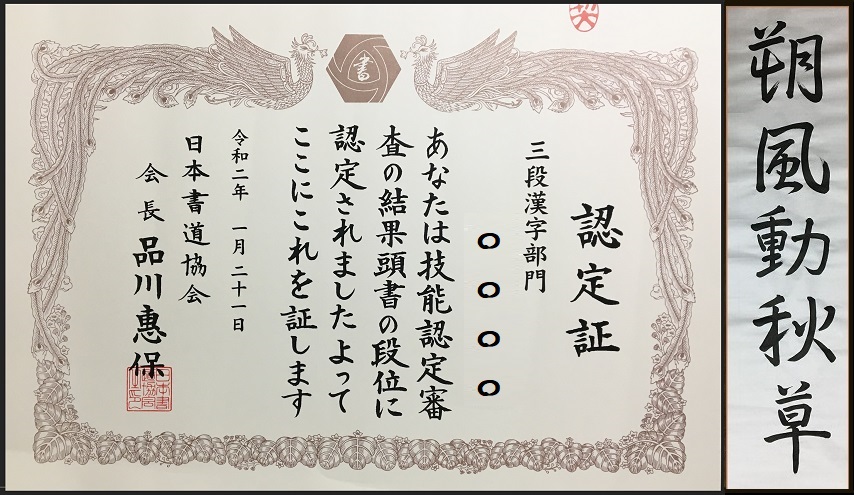 書
認定証
三段漢字部門
○○○○
あなたは技能認定審
査の結果頭書の段位に
認定されましたよって
ここにこれを証します
令和二年 一月二十一日
日本書道協会
会長 品川惠保
朔風動秋草